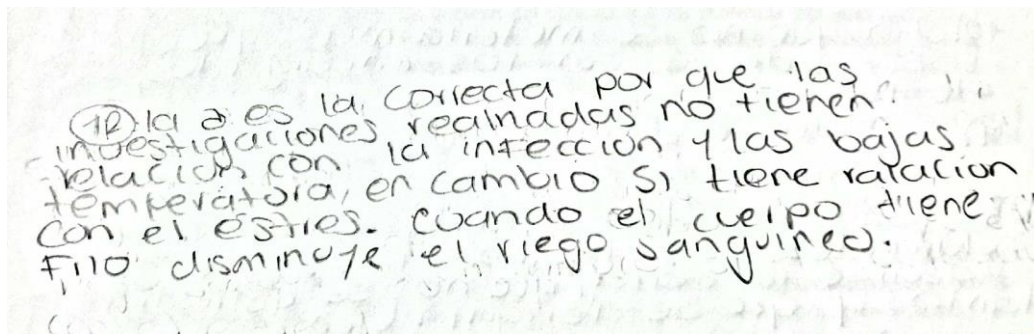 12) la a es la correcta por que las
investigaciones realnadas no tienen
relación con la infección y las bajas
temperatura, en cambio si tiene ralacion
con el estres. Cuando el cuerpo tiene
Frio disminuye el riego sanguineo.